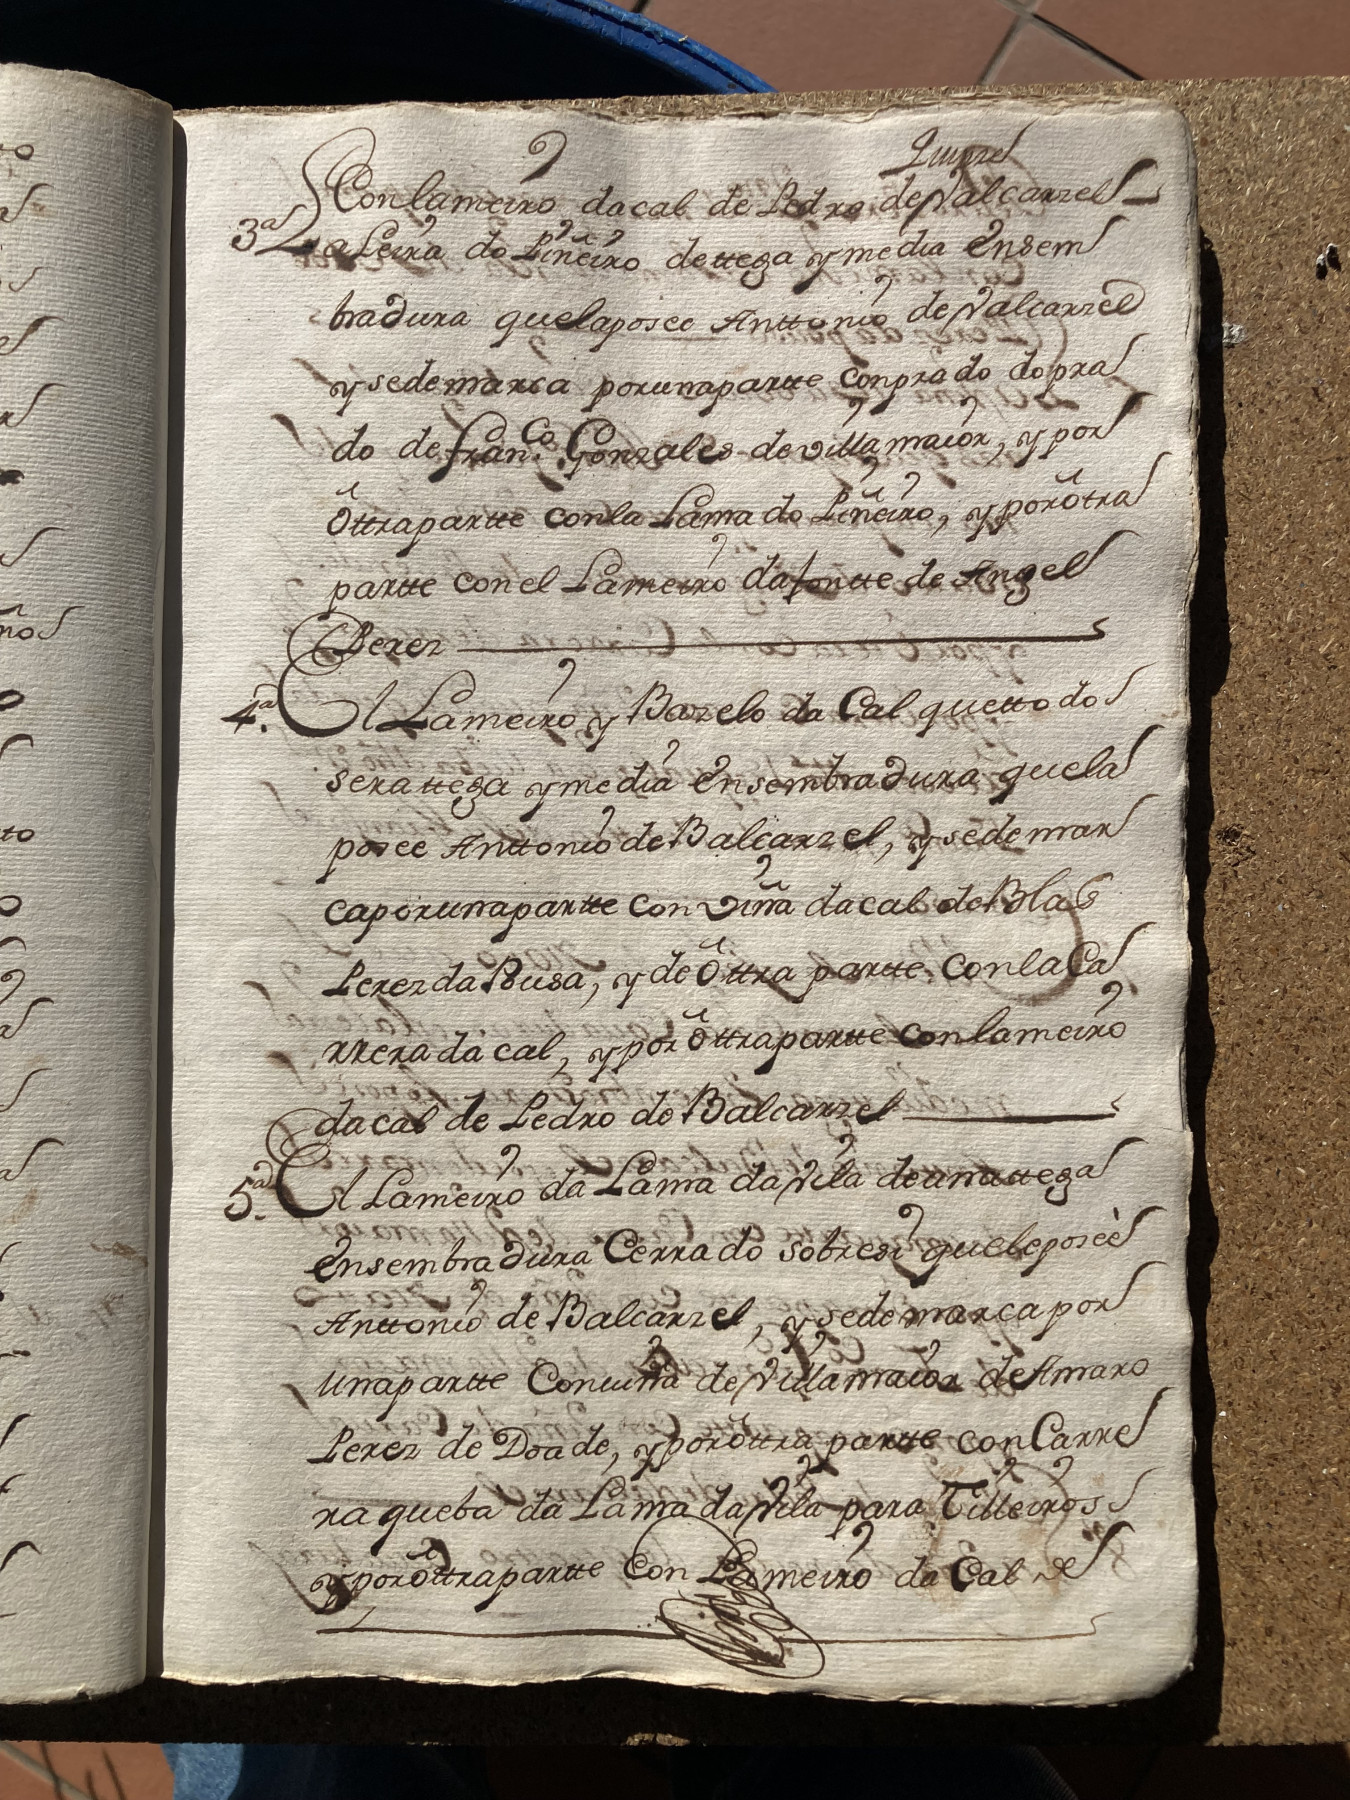 Con lameiro da cal de Pedro de Valcarzel
3a La Leira do Piñeiro de ttega y media En sem
bradura que la posee Anttonio de Valcarzel
y se demarca por una partte con prado do pra
do de Franco. Gonzales de villamaior, y por
ôttra partte con la Lama do Piñeiro, y por ôtra
partte con el Lameiro da fontte de Angel
Perez
4a. El Lameiro y Bazelo da Cal que ttodo
sera ttega y media Ensembradura que la
posee Anttonio de Balcarzel, y se demar
ca por una partte con viña da cal de Blas
Perez da Rusa, y de ôttra partte Con la Ca
rrera da cal, y por ôttra partte con lameiro
da cal de Pedro de Balcarzel
5a. El Lameiro da Lama da Vila de una ttega
ensembradura Cerrado sobre si que le poseè
Anttonio de Balcarzel, y se demarca por
una partte Con viña de Villamaior de Amaro
Perez de Doade, y por ôttra partte con Carre
ra que ba da Lama da Vila para Tilleiros
y por ôttra partte Con Lameiro da Cal de